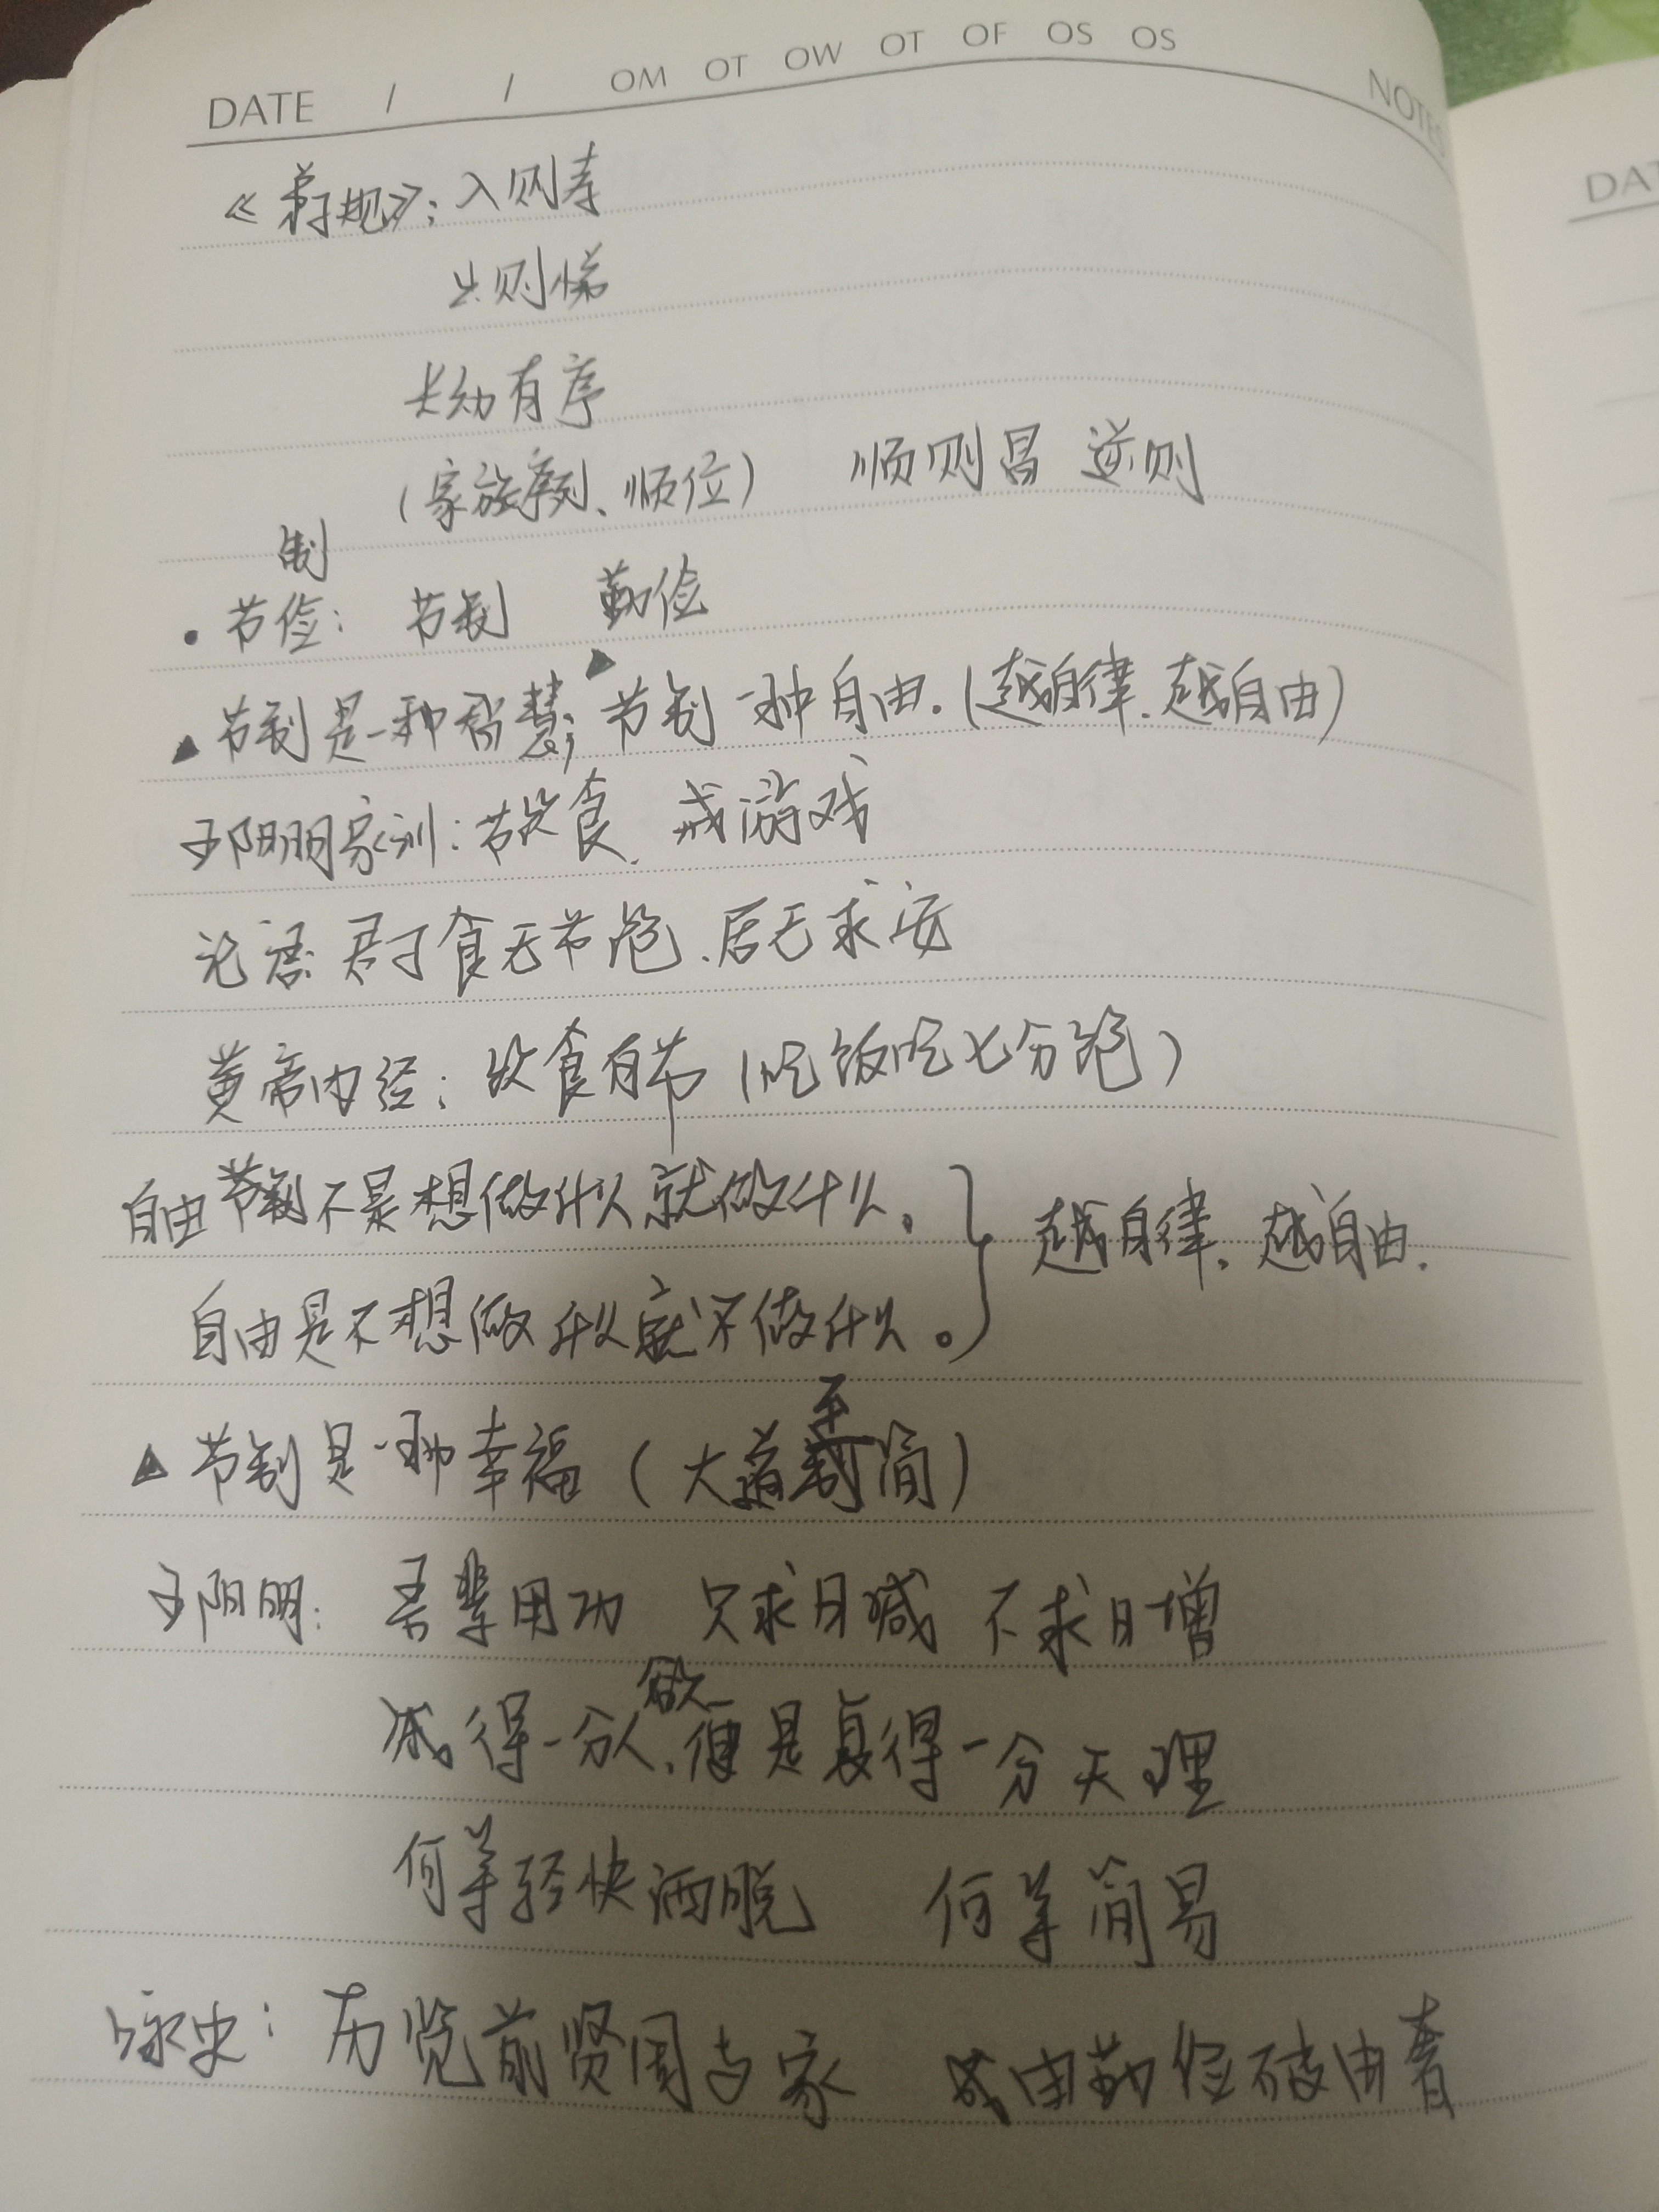 DATE / / OM OT OW OT OF OS OS
NOTES
DAT
《弟子规》: 入则孝
出则悌
长幼有序
(家族序列、顺位) 顺则昌 逆则
制
• 节俭: 节制 勤俭
▲ 节制是一种智慧; ▲ 节制一种自由. (越自律. 越自由)
王阳明家训: 节饮食. 戒游戏
论语: 君子食无节饱. 居无求安
黄帝内经: 饮食有节 (吃饭吃七分饱)
自由节制不是想做什么就做什么。} 越自律. 越自由.
自由是不想做什么就不做什么。
▲ 节制是一种幸福 (大道至简)
王阳明: 吾辈用功 只求日减 不求日增
减得一分人欲, 便是复得一分天理
何等轻快洒脱 何等简易
咏史: 历览前贤国与家 成由勤俭破由奢